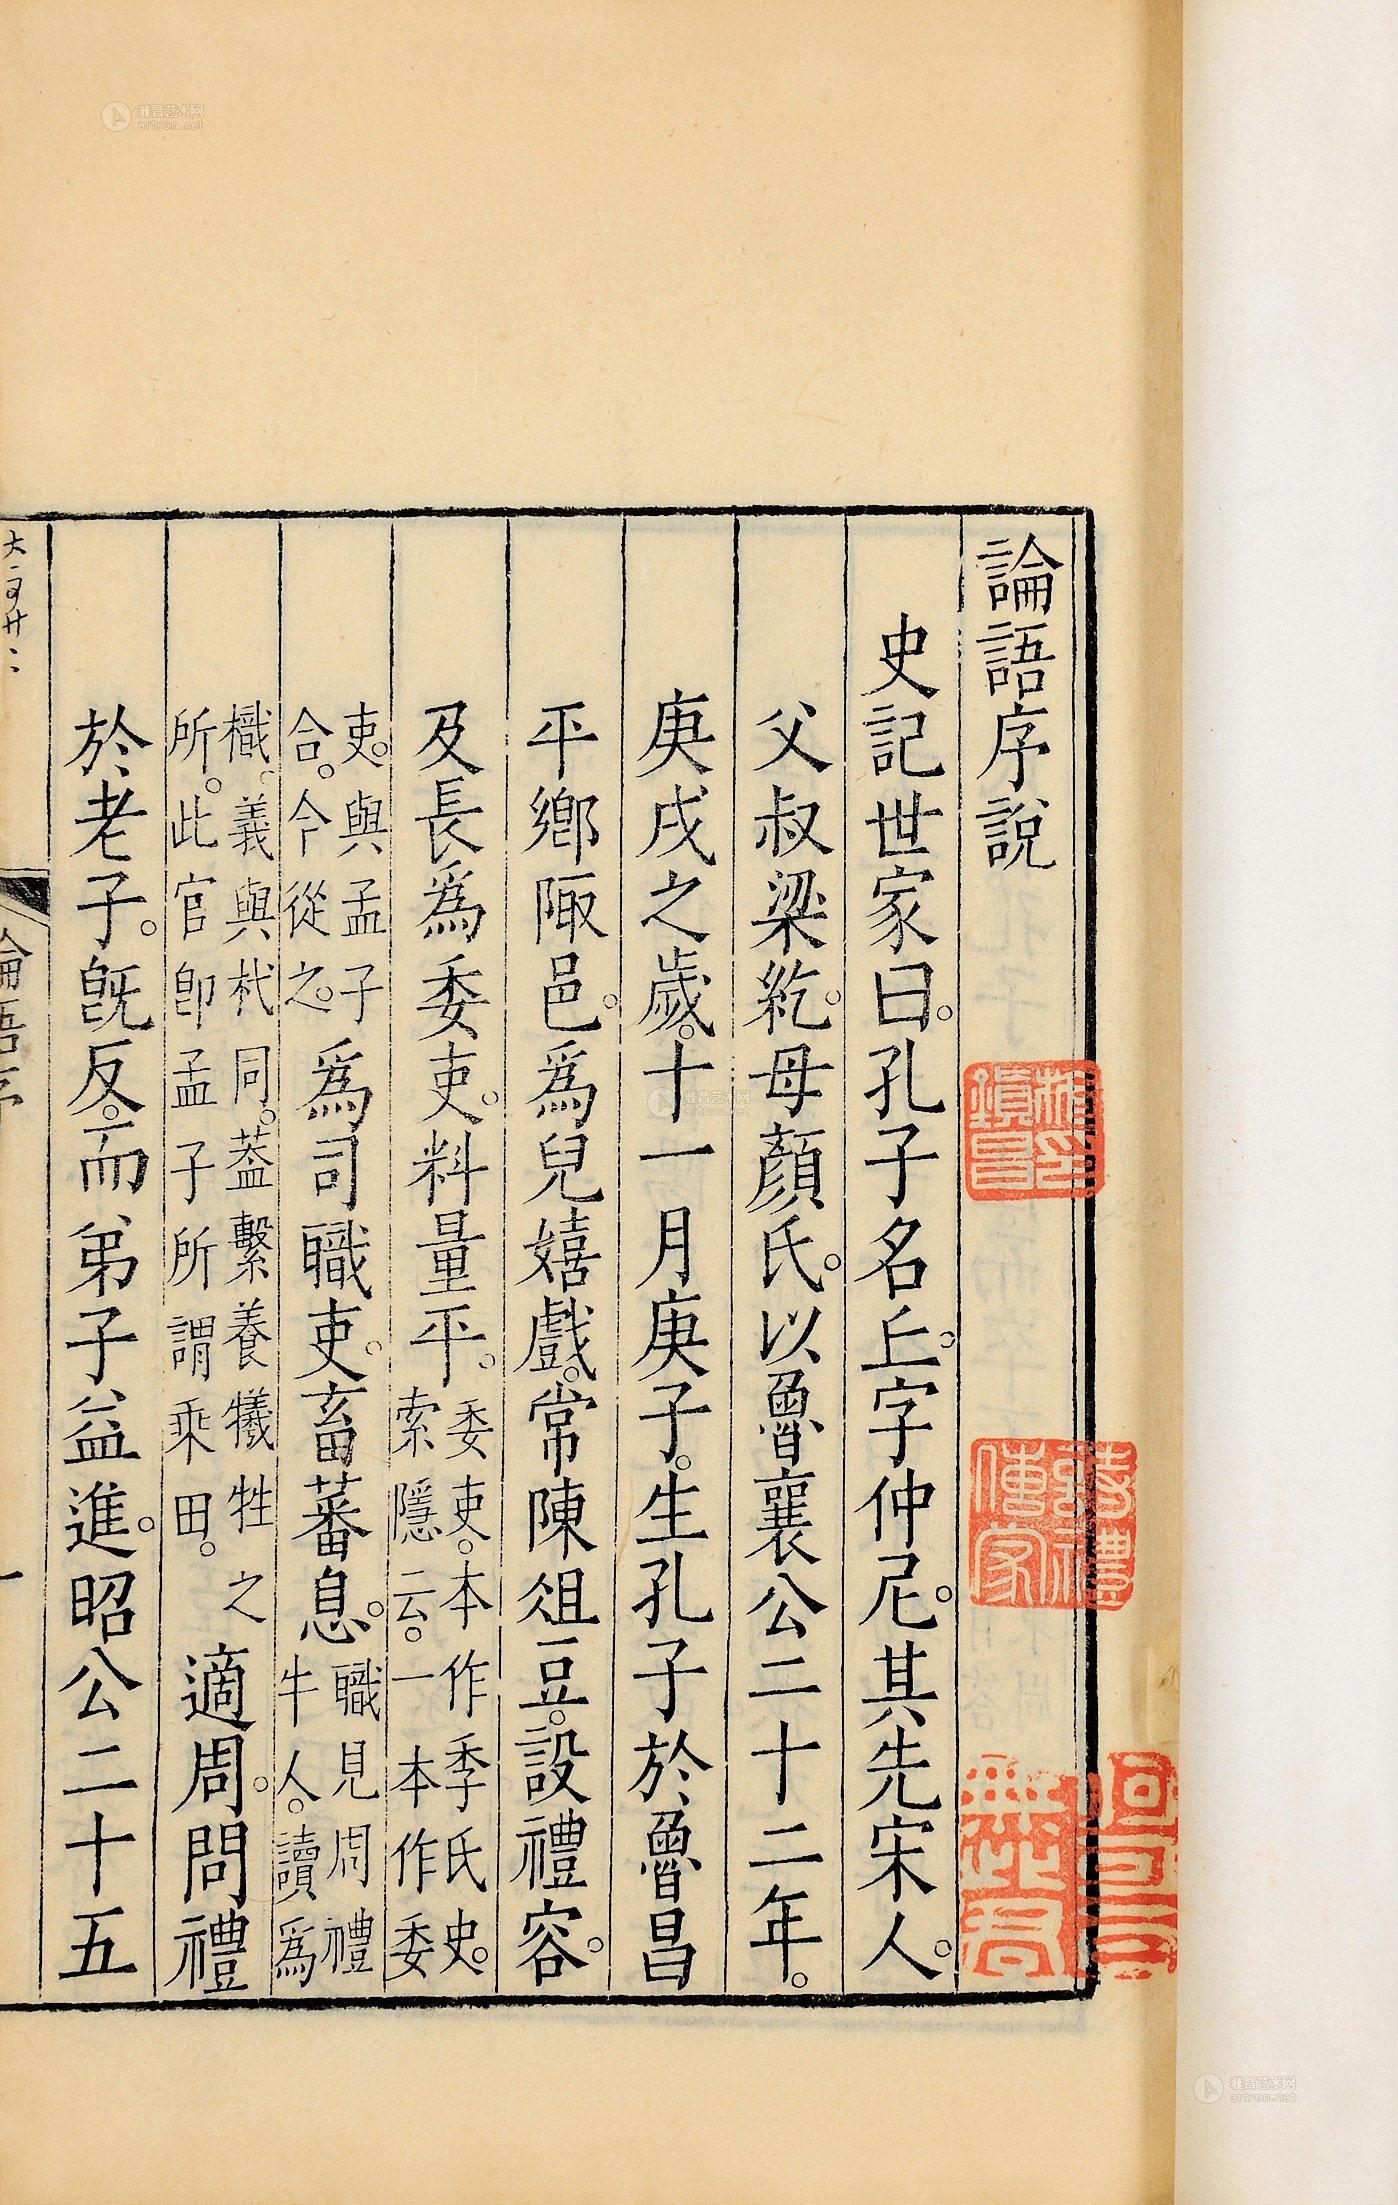 論語序說
史記世家曰。孔子名丘。字仲尼。其先宋人。
父叔梁紇。母顏氏。以魯襄公二十二年。
庚戌之歲。十一月庚子。生孔子於魯昌
平鄉陬邑。爲兒嬉戲。常陳俎豆。設禮容。
及長爲委吏。料量平。委吏。本作季氏史。索隱云。一本作委
吏。與孟子合。今從之。爲司職吏。畜蕃息。職見周禮牛人。讀爲
樴。義與杙同。蓋繫養犧牲之所。此官卽孟子所謂乘田。適周。問禮
於老子。旣反。而弟子益進。昭公二十五
論語序
一
雅昌艺术网
artron.net
雅昌艺术网
artron.net